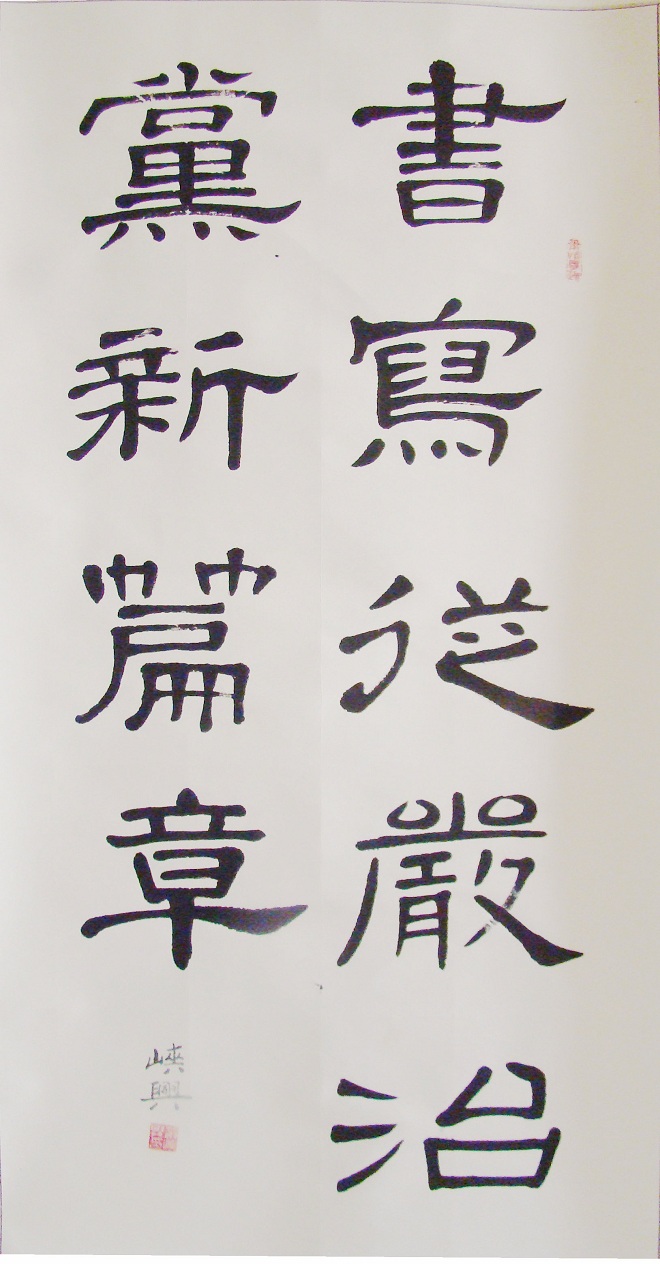 書寫從嚴治
黨新篇章
嶸興